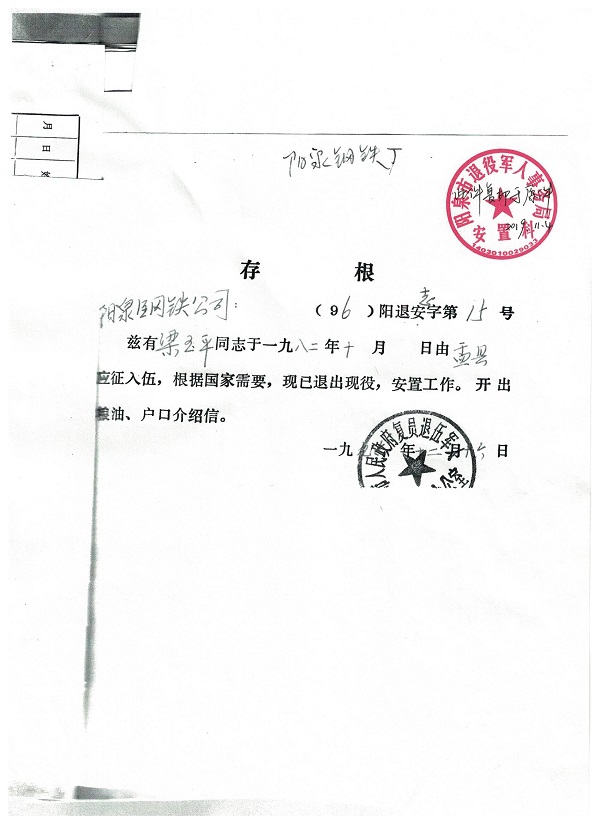 月
日
阳泉钢铁厂
阳泉市退役军人事务局
此件复印于原件
2019.11.4
安置科
1403010029033
存 根
阳泉钢铁公司:
(96)阳退安字第15号
兹有梁玉平同志于一九八二年十月 日由盂县
应征入伍,根据国家需要,现已退出现役,安置工作。开出
粮油、户口介绍信。
一九 年十二月十六日
人民政府复员退伍军